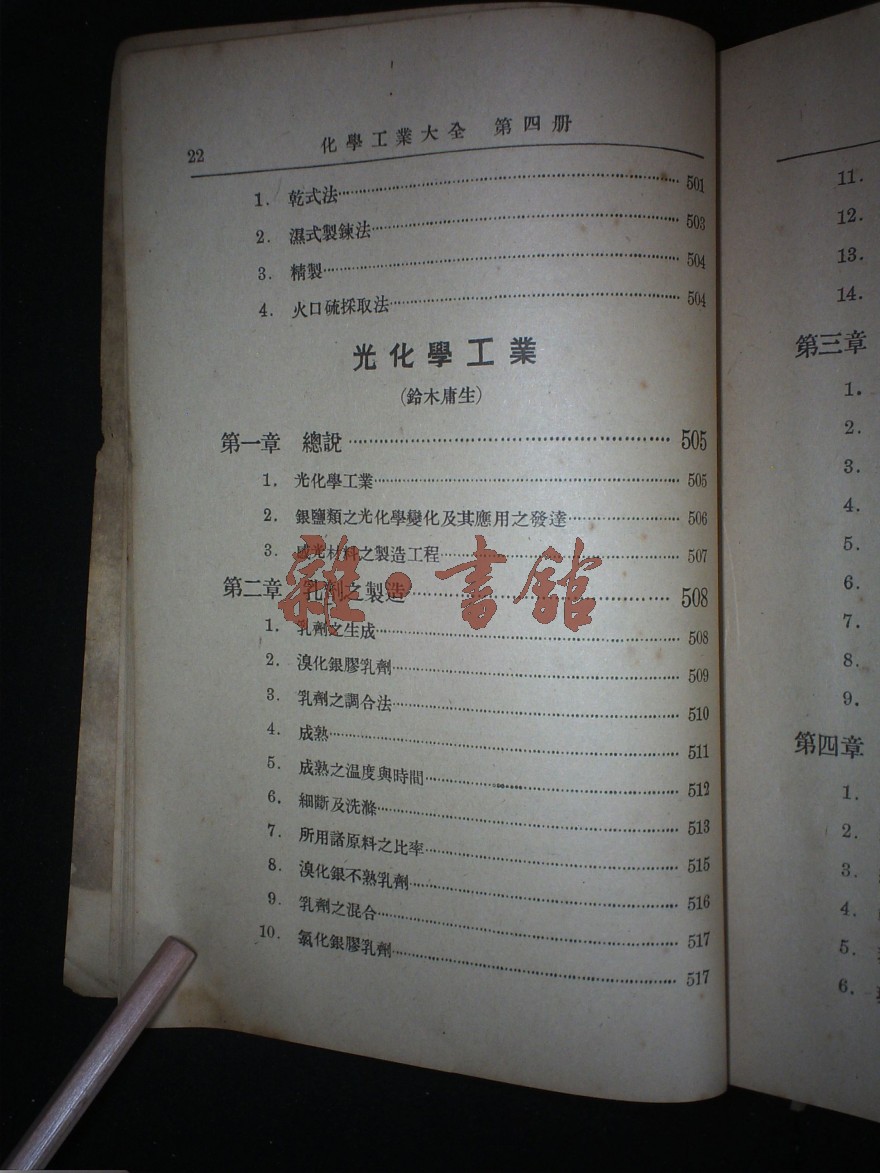 22 化學工業大全 第四册
1. 乾式法 501
2. 濕式製鍊法 503
3. 精製 504
4. 火口硫採取法 504
光化學工業
(鈴木庸生)
第一章 總說 505
1. 光化學工業 505
2. 銀鹽類之光化學變化及其應用之發達 506
3. 感光材料之製造工程 507
第二章 乳劑之製造 508
1. 乳劑之生成 508
2. 溴化銀膠乳劑 509
3. 乳劑之調合法 510
4. 成熟 511
5. 成熟之温度與時間 512
6. 細斷及洗滌 513
7. 所用諸原料之比率 515
8. 溴化銀不熟乳劑 516
9. 乳劑之混合 517
10. 氯化銀膠乳劑 517
雜·書舘
11.
12.
13.
14.
第三章
1.
2.
3.
4.
5.
6.
7.
8.
9.
第四章
1.
2.
3.
4.
5.
6.